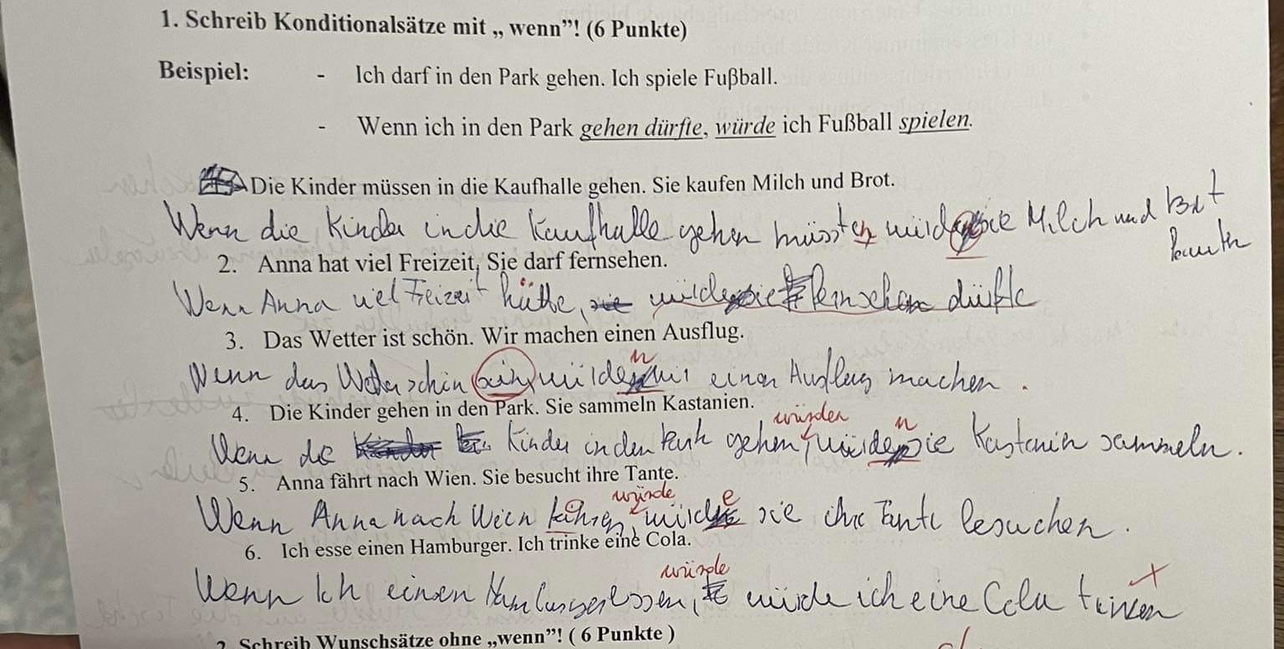 1. Schreib Konditionalsätze mit „ wenn”! (6 Punkte)
Beispiel: - Ich darf in den Park gehen. Ich spiele Fußball.
- Wenn ich in den Park gehen dürfte, würde ich Fußball spielen.
Die Kinder müssen in die Kaufhalle gehen. Sie kaufen Milch und Brot.
Wenn die Kinder in die Kaufhalle gehen müssten würde sie Milch und Brot
2. Anna hat viel Freizeit, Sie darf fernsehen.
Wenn Anna viel Freizeit hätte, würde sie fernsehen dürfte
3. Das Wetter ist schön. Wir machen einen Ausflug.
n
Wenn das Wetter schön sein würde wir einen Ausflug machen .
4. Die Kinder gehen in den Park. Sie sammeln Kastanien.
würden n
Wenn die Kinder in den Park gehen, würde sie Kastanien sammeln.
5. Anna fährt nach Wien. Sie besucht ihre Tante.
würde e
Wenn Anna nach Wien sie ihre Tante besuchen .
6. Ich esse einen Hamburger. Ich trinke eine Cola.
würde
Wenn Ich einen Hamburger essen, würde ich eine Cola trinken
2. Schreib Wunschsätze ohne „wenn”! ( 6 Punkte )